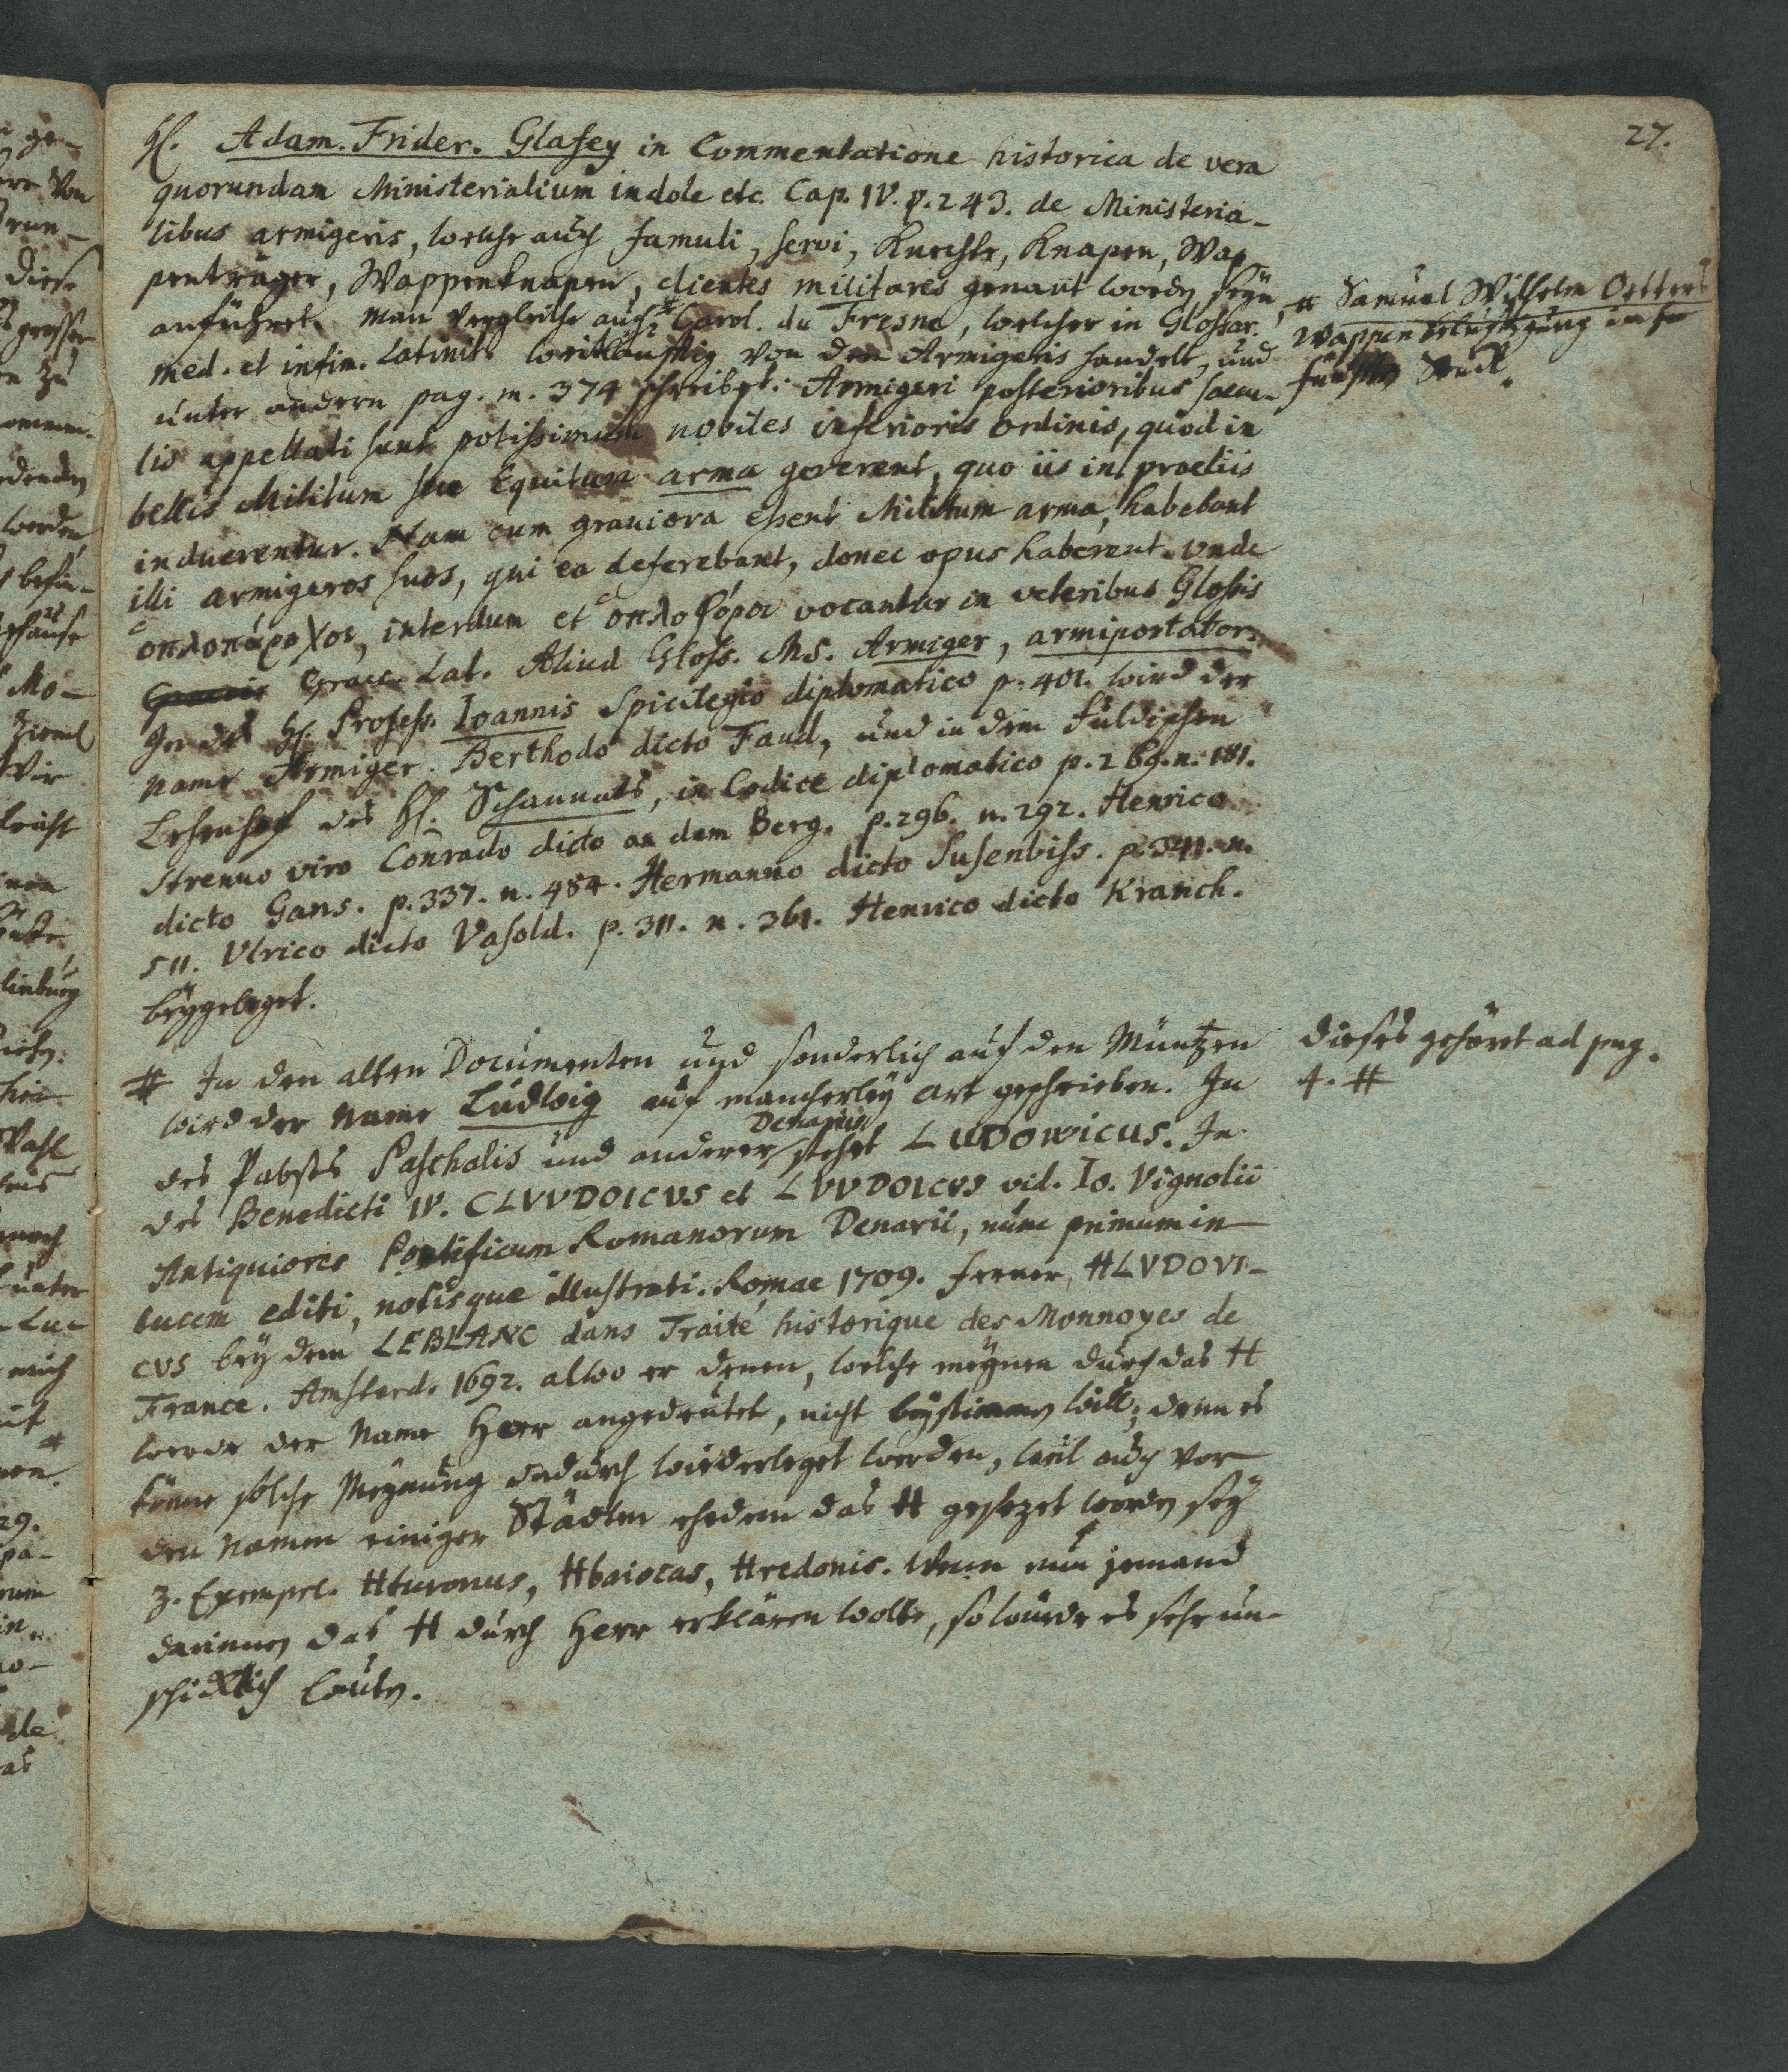 27.
H. Adam. Frider. Glafey in Commentatione historica de vera
quorundam Ministerialium indole etc. Cap. IV. p. 243. de Ministeria-
libus armigeris, welche auch famuli, servi, Knechte, Knapen, Wap-
penträger, Wappenknapen, clientes militares genant worden seyn,
anführet. Man vergleiche auch # Carol. du Fresne, welcher in Glossar.
med. et infim. Latinit. weitläufftig von den Armigeris handelt, und
unter andern pag. m. 374 schreibet: Armigeri posterioribus saecu-
lis appellati sunt potissimum nobiles inferioris ordinis, quod in
bellis Militum seu Equitum arma gererent, quo iis in proeliis
induerentur. Nam cum graviora essent Militum arma, habebant
illi armigeros suos, qui ea deferebant, donec opus haberent. Unde
ὁπλοπάροχοι, interdum et ὁπλοφόροι vocantur in veteribus Glossis
Graecis Graec. Lat. Aliud Gloss. Ms. Armiger, armiportator.
In des H. Profess. Ioannis Spicilegio diplomatico p. 401. wird der
Name Armiger Berthodo dicto Faud, und in dem Fuldischen
Lehenhof des H. Schannats, in Codice diplomatico p. 269. n. 181.
Strenuo viro Conrado dicto an dem Berg. p. 296. n. 292. Henrico
dicto Gans. p. 337. n. 484. Hermanno dicto Susenbiss. p. 341. n.
511. Ulrico dicto Vasold. p. 311. n. 361. Henrico dicto Kranch.
beygeleget.
# Samuel Wilhelm Oetters
Wappenbelustigung im
fünften Stück.
# In den alten Documenten und sonderlich auf den Müntzen
wird der Name Ludwig auf mancherley Art geschrieben. In
des Pabsts Paschalis und anderer Denariis stehet LUDOWICUS. In
des Benedicti IV. CLVVDOICVS et LVVDOICVS vid. Io. Vignolii
Antiquiores Pontificum Romanorum Denarii, nunc primum in
lucem editi, notisque illustrati. Romae 1709. ferner, HLVDOVI-
CVS bey dem LEBLANC dans Traité historique des Monnoyes de
France. Amsterd. 1692. alwo er denen, welche meynen durch das H
werde der Name Herr angedeutet, nicht beystimmen will; denn es
könne solche Meynung dadurch wiederleget werden, weil auch vor
den Namen einiger Städten ehedem das H gesezet worden sey
z. Exempel. Hturonus, Hbaiocas, Hredonis. Wenn nun jemand
darinnen das H durch Herr erklären wolte, so würde es sehr un-
schicklich lauten.
Dieses gehöret ad pag.
4. #